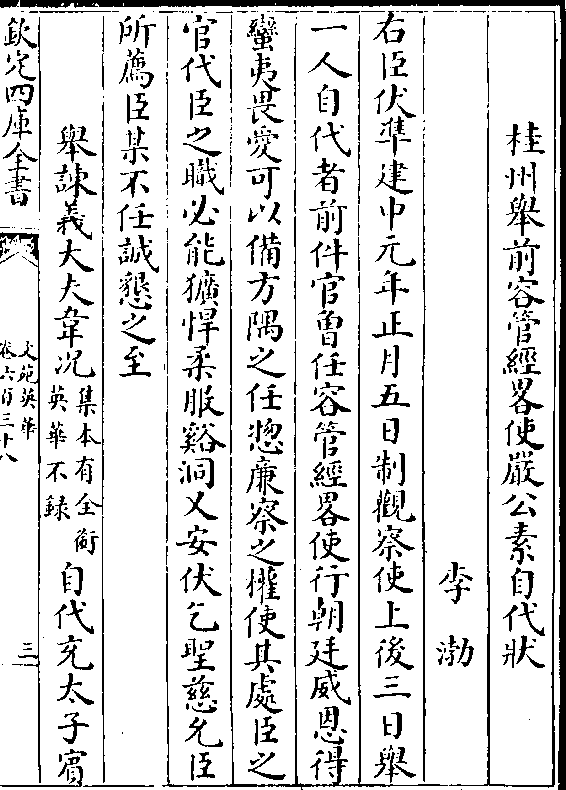 桂州舉前容管經畧使嚴公素自代狀
李渤
右臣伏準建中元年正月五日制觀察使上後三日舉
一人自代者前件官曾任容管經畧使行朝廷威恩得
蠻夷畏愛可以備方隅之任揔廉察之權使其處臣之
官代臣之職必能獷悍柔服谿洞乂安伏乞聖慈允臣
所薦臣某不任誠懇之至
舉諫議大夫韋况集本有全銜英華不録自代充太子賔
欽定四庫全書
文苑英華
卷六百三十八
三